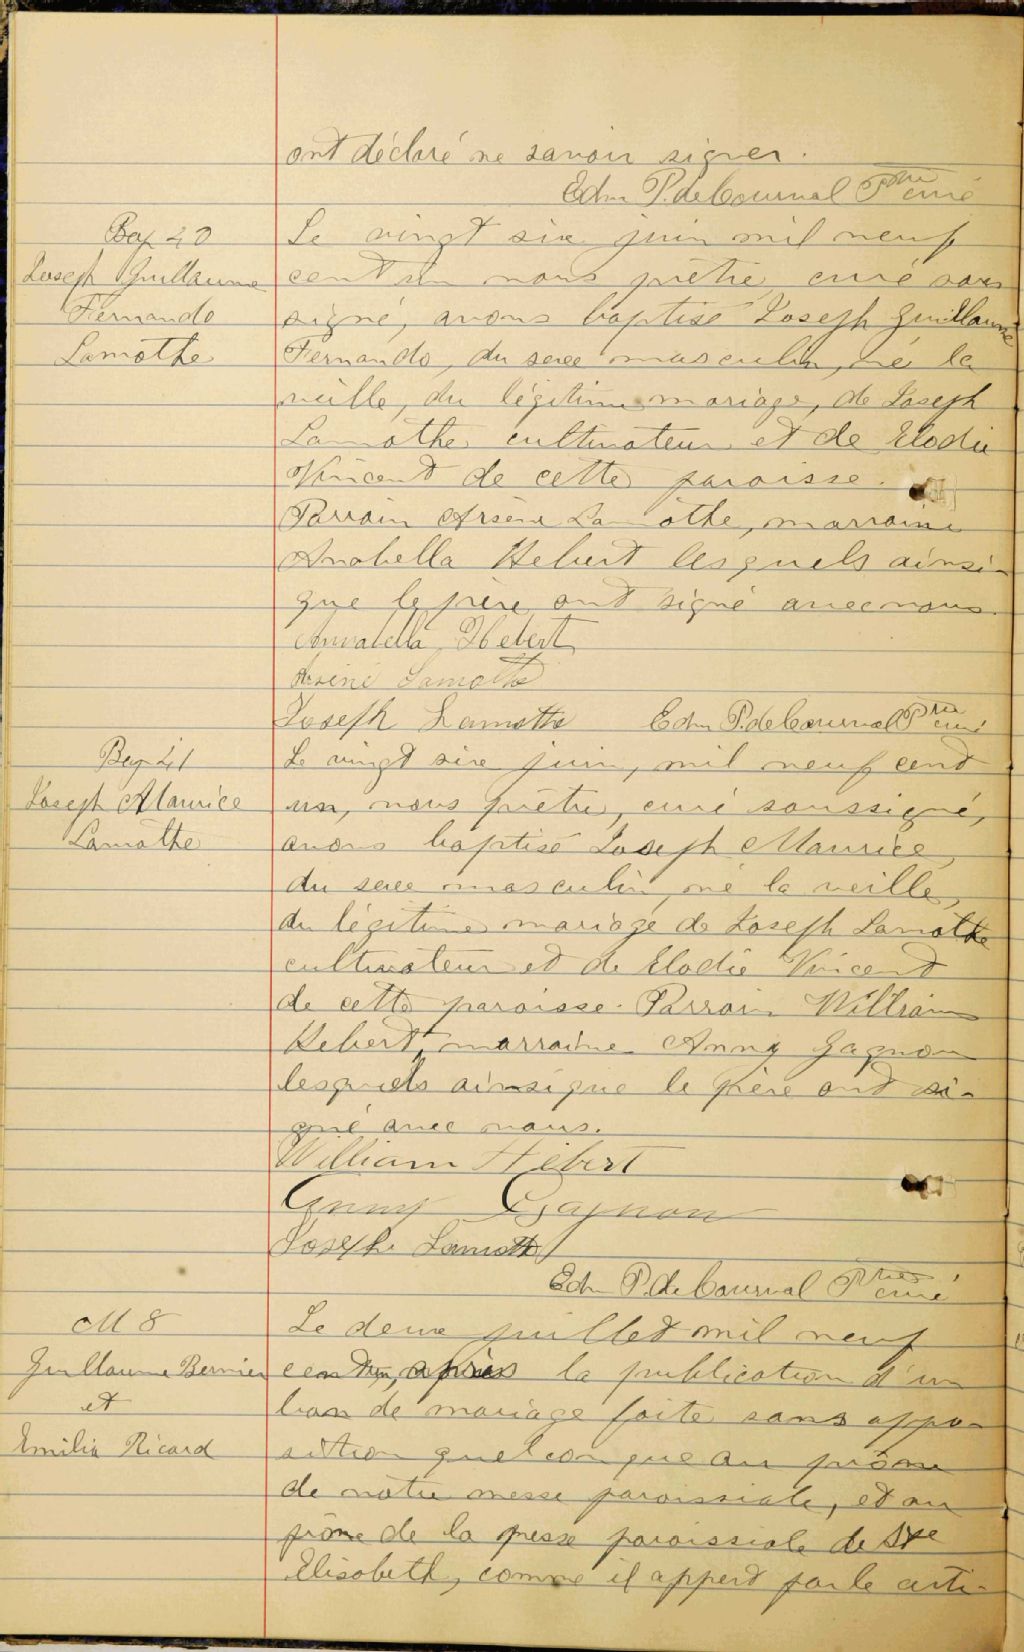 ont déclaré ne savoir signer.
Edm P. de Courval Ptre curé
Bap 40
Joseph Guillaume
Fernando
Lamothe
Le vingt six juin mil neuf
cent un nous prêtre, curé sous
signé, avons baptisé Joseph Guillaume
Fernando, du sexe masculin, né la
veille, du légitime mariage, de Joseph
Lamothe cultivateur et de Elodie
Vincent de cette paroisse.
Parrain Arsène Lamothe, marraine
Anabella Hebert lesquels ainsi-
que le père ont signé avec nous.
Annabella Hebert
Arsène Lamothe
Joseph Lamothe Edm P. de Courval Ptre curé
Bap 41
Joseph Maurice
Lamothe
Le vingt six juin, mil neuf cent
un, nous prêtre, curé soussigné,
avons baptisé Joseph Maurice,
du sexe masculin, né la veille,
du légitime mariage de Joseph Lamothe
cultivateur et de Elodie Vincent
de cette paroisse. Parrain William
Hebert, marraine Anny Gagnon
lesquels ainsi que le père ont si-
gné avec nous.
William Hébert
Anny Gagnon
Joseph Lamothe
Edm P. de Courval Ptre curé
M 8
Guillaume Bernier
et
Emilia Ricard
Le deux juillet mil neuf
cent un, après la publication d'un
ban de mariage faite sans oppo-
sition quelconque au prône
de notre messe paroissiale, et au
prône de la messe paroissiale de Ste
Elisabeth, comme il appert par le certi-